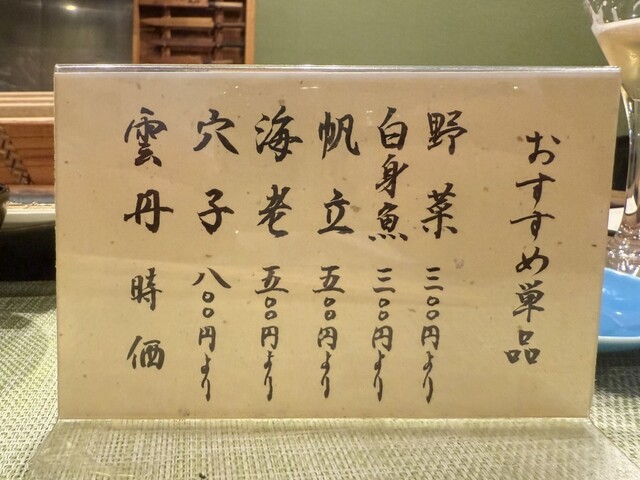 おすすめ単品
野菜 三〇〇円より
白身魚 三〇〇円より
帆立 五〇〇円より
海老 五〇〇円より
穴子 八〇〇円より
雲丹 時価